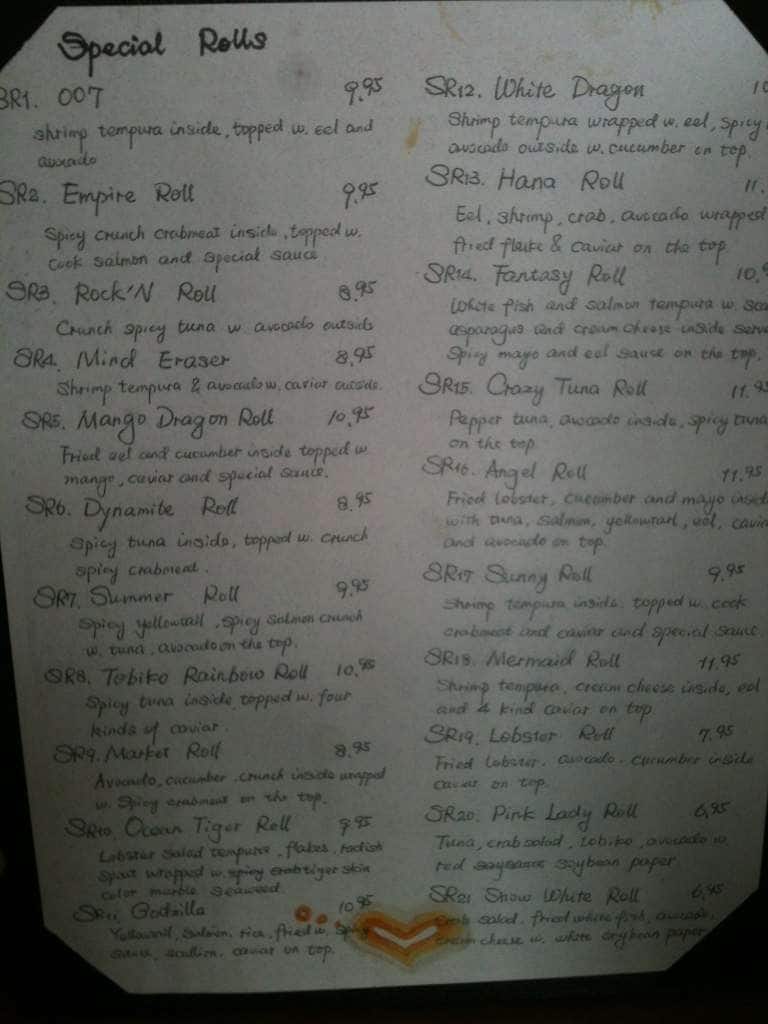 Special Rolls
SR1. 007 9.95
Shrimp tempura inside, topped w. eel and
avocado
SR2. Empire Roll 9.95
Spicy crunch crabmeat inside, topped w.
cook salmon and special sauce
SR3. Rock'N Roll 8.95
Crunch spicy tuna w avocado outside
SR4. Mind Eraser 8.95
Shrimp tempura & avocado w. caviar outside.
SR5. Mango Dragon Roll 10.95
Fried eel and cucumber inside topped w
mango, caviar and special sauce.
SR6. Dynamite Roll 8.95
Spicy tuna inside, topped w. crunch
spicy crabmeat.
SR7. Summer Roll 9.95
Spicy yellowtail, spicy salmon crunch
w. tuna, avocado on the top.
SR8. Tobiko Rainbow Roll 10.95
Spicy tuna inside topped w. four
kinds of caviar.
SR9. Market Roll 8.95
Avocado, cucumber, crunch inside wrapped
w. Spicy crabmeat on the top.
SR10. Ocean Tiger Roll 9.95
Lobster salad tempura, flakes, radish
wrapped w. spicy crab tiger skin
color marble seaweed
SR11. Godzilla 10.95
Yellowtail, Salmon, rice, fried w. spicy
sauce, scallion, caviar on top.
SR12. White Dragon 10
Shrimp tempura wrapped w. eel, spicy
avocado outside w. cucumber on top.
SR13. Hana Roll 11.
Eel, shrimp, crab, avocado wrapped
fried flake & caviar on the top
SR14. Fantasy Roll 10.9
White fish and salmon tempura w. sca
asparagus and cream cheese inside serve
Spicy mayo and eel sauce on the top.
SR15. Crazy Tuna Roll 11.95
Pepper tuna, avocado inside, spicy tuna
on the top
SR16. Angel Roll 11.95
Fried lobster, cucumber and mayo inside
with tuna, salmon, yellowtail, eel, cavia
and avocado on top.
SR17 Sunny Roll 9.95
Shrimp tempura inside. topped w. cook
crabmeat and caviar and special sauce.
SR18. Mermaid Roll 11.95
Shrimp tempura, cream cheese inside, eel
and 4 kind caviar on top.
SR19. Lobster Roll 7.95
Fried lobster. avocado. cucumber inside
caviar on top.
SR20. Pink Lady Roll 6.95
Tuna, crab salad, tobiko, avocado w.
red soybean paper
SR21 Snow White Roll 6.95
Crab salad, fried white fish, avocado,
cream cheese w. white soybean paper